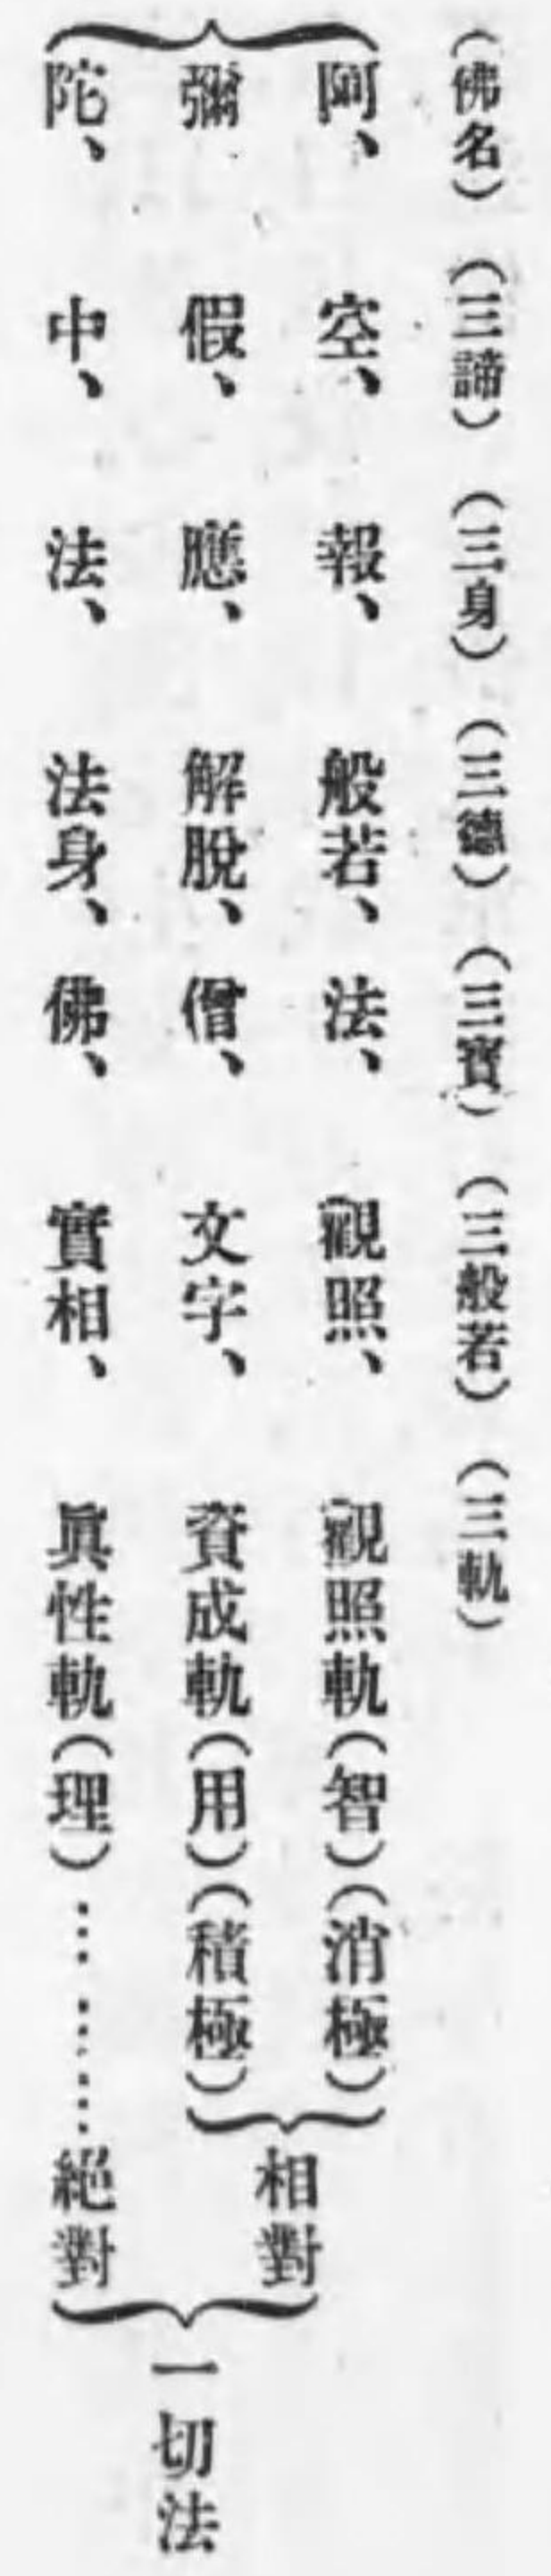 （佛名）（三諦）（三身）（三德）（三寶）（三般若）（三軌）
阿、空、報、般若、法、觀照、觀照軌（智）（消極）
彌 假、應、解脫、僧、文字、資成軌（用）（積極）
相對
陀、中、法、法身、佛、實相、眞性軌（理）………絕對
一切法